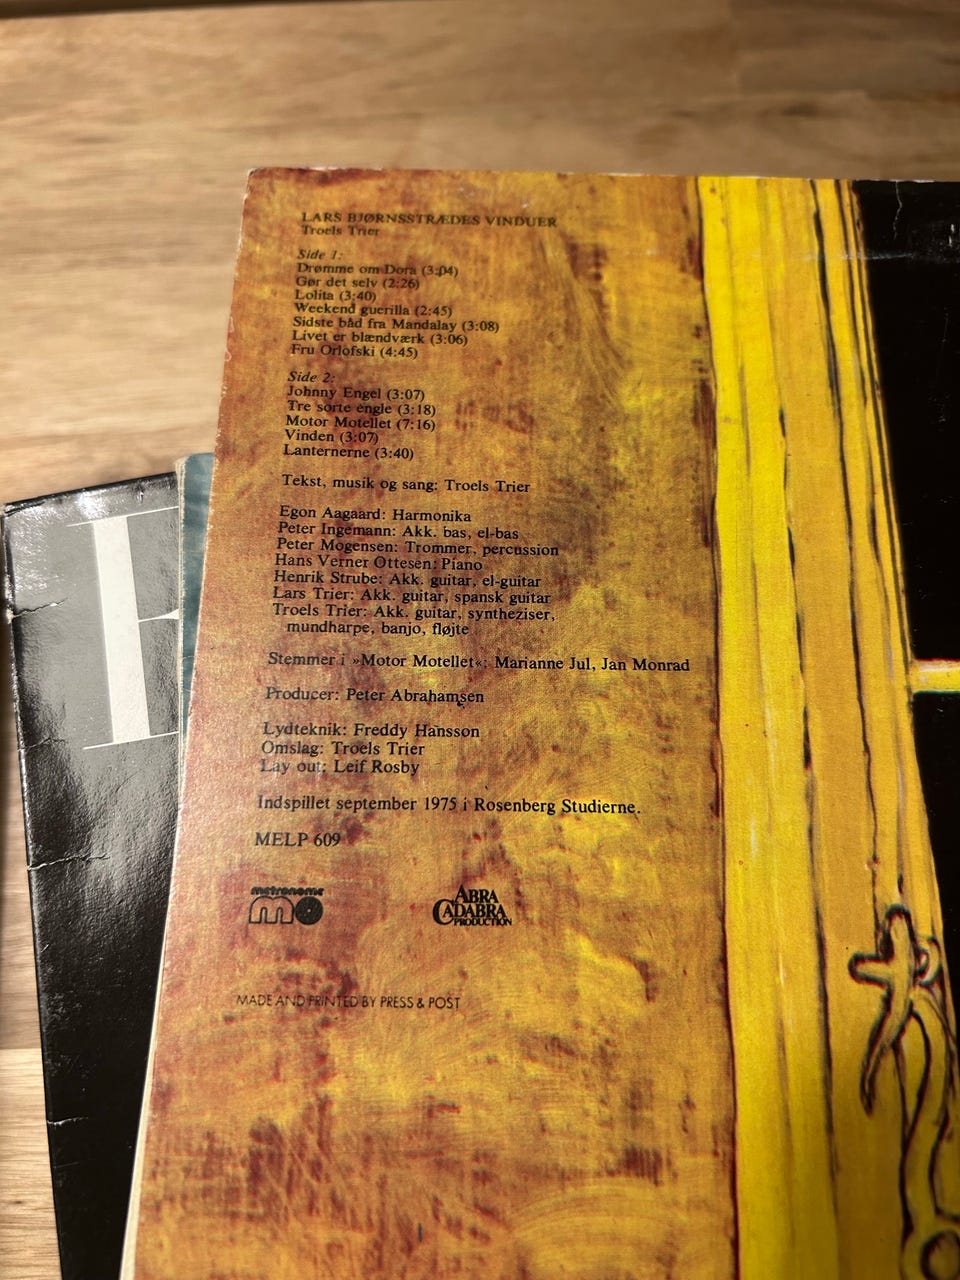 LARS BJØRNSSTRÆDES VINDUER
Troels Trier
Side 1:
Drømme om Dora (3:04)
Gør det selv (2:26)
Lolita (3:40)
Weekend guerilla (2:45)
Sidste båd fra Mandalay (3:08)
Livet er blændværk (3:06)
Fru Orlofski (4:45)
Side 2:
Johnny Engel (3:07)
Tre sorte engle (3:18)
Motor Motellet (7:16)
Vinden (3:07)
Lanternerne (3:40)
Tekst, musik og sang: Troels Trier
Egon Aagaard: Harmonika
Peter Ingemann: Akk. bas, el-bas
Peter Mogensen: Trommer, percussion
Hans Verner Ottesen: Piano
Henrik Strube: Akk. guitar, el-guitar
Lars Trier: Akk. guitar, spansk guitar
Troels Trier: Akk. guitar, syntheziser,
mundharpe, banjo, fløjte
Stemmer i »Motor Motellet«: Marianne Jul, Jan Monrad
Producer: Peter Abrahamsen
Lydteknik: Freddy Hansson
Omslag: Troels Trier
Lay out: Leif Rosby
Indspillet september 1975 i Rosenberg Studierne.
MELP 609
metronome
ABRA
CADABRA
PRODUCTION
MADE AND PRINTED BY PRESS & POST